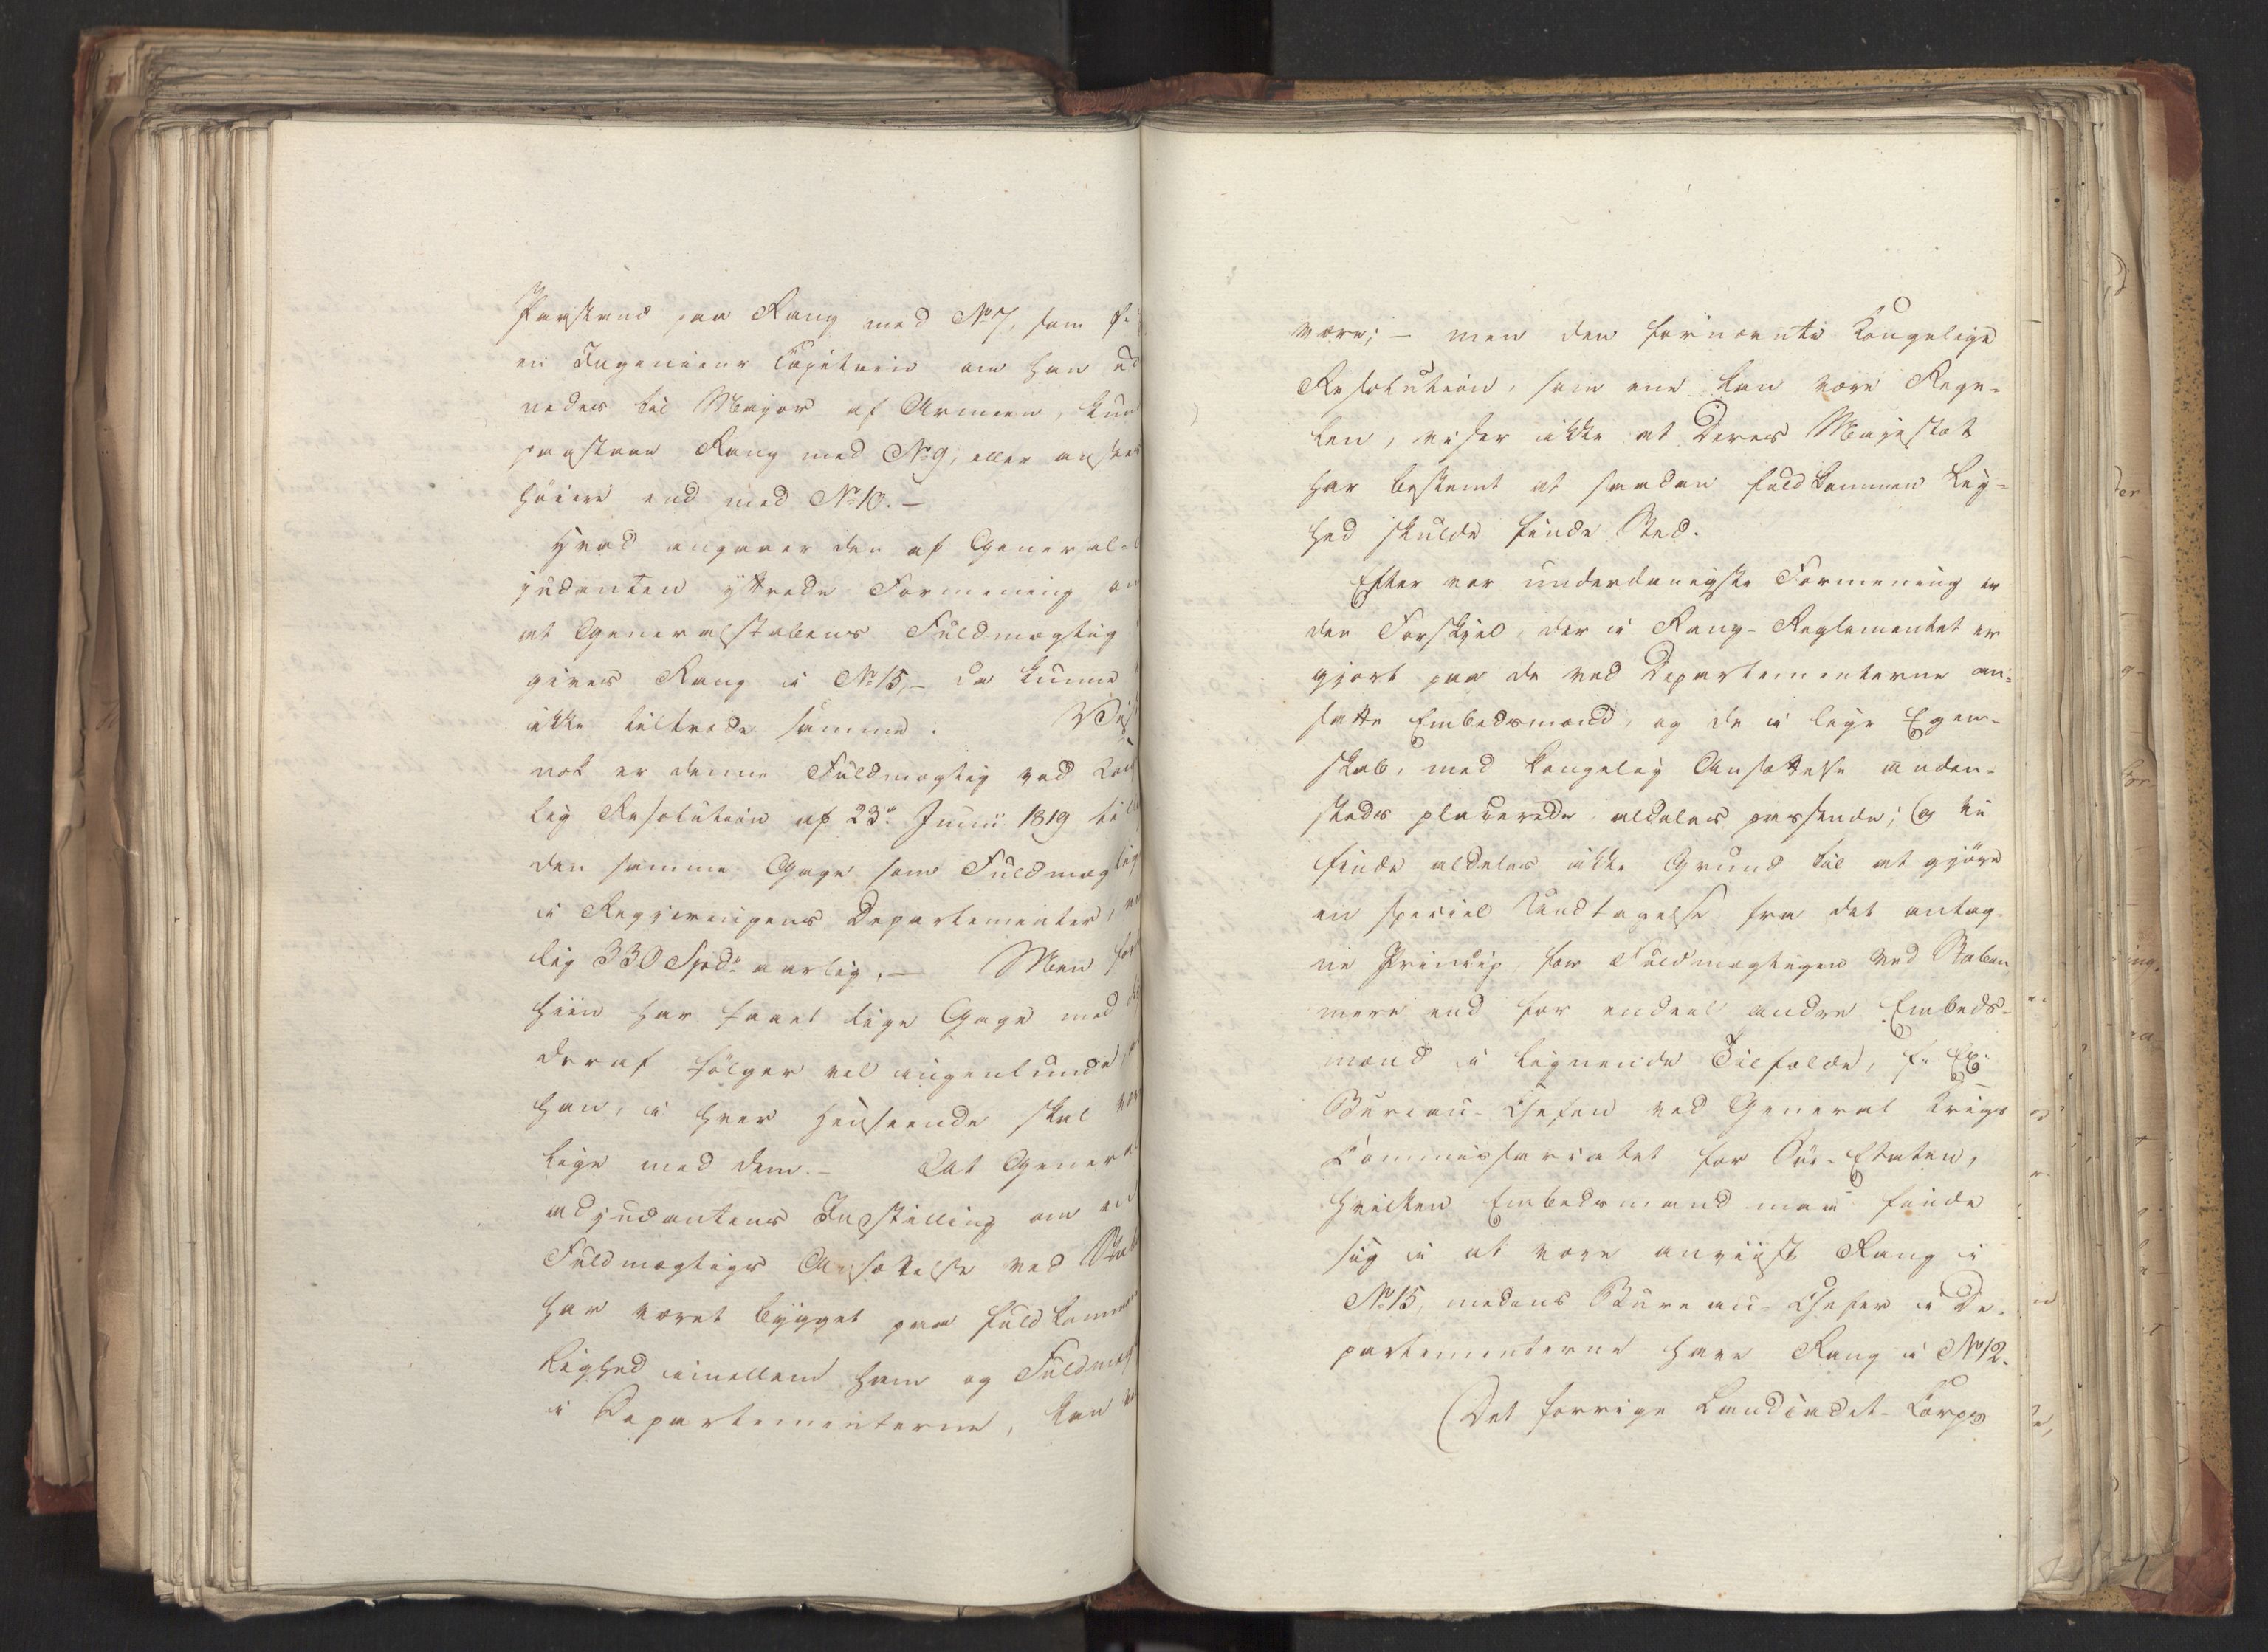 Paastand paa Rang med No 7, som f.
en Ingenieur Capitain om han ud
nedes til Major af Armeen, kun
paastaae Rang med No 9, eller ansees
höiere end med No 10. –
Hvad angaaer den af General-
judanten yttrede Formening om
at Generalstabens Fuldmægtig
gives Rang i No 15, – da kunne
ikke tiltræde samme. Vist
nok er denne Fuldmægtig ved Kon
lig Resolution af 23de Junii 1819 till
den samme Gage som Fuldmægtig
i Regjeringens Departementer,
lig 330 Spd. aarlig. – Men for
hiin har faaet lige Gage med di
deraf fölger vel ingenlunde,
han, i hver Henseende skal vær
lige med dem. – At Genera
adjudantens Indstilling om en
Fuldmægtigs Ansættelse ved Stab
har været bygget paa fuldkommen
Lighed imellem ham og Fuldmægt
i Departementerne, kan
være; – men den fornævnte Kongelige
Resolution, som ene kan være Rege-
len, viser ikke at Deres Majestæt
har bestemt at saadan fuldkommen Lig-
hed skulde finde Sted.
Efter vor underdanigste Formening er
den Forskjel, der i Rang-Reglementet er
gjort paa de ved Departementerne an-
satte Embedsmænd, og de i lige Egen-
skab, med kongelig Ansættelse anden-
steds placerede, aldeles passende; og vi
finde aldeles ikke Grund til at gjöre
en speciel Undtagelse fra det antag-
ne Princip for Fuldmægtigen ved Staben
mere end for endeel andre Embeds-
mænd i lignende Tilfælde, f. Ex:
Bureau-Chefen ved General Krigs
Commissariatet for Söe-Etaten,
hvilken Embedsmand maa finde
sig i at være anviist Rang i
No 15, medens Bureau-Chefer i De-
partementerne have Rang i No 12.
Det forrige Landcadet-Corps